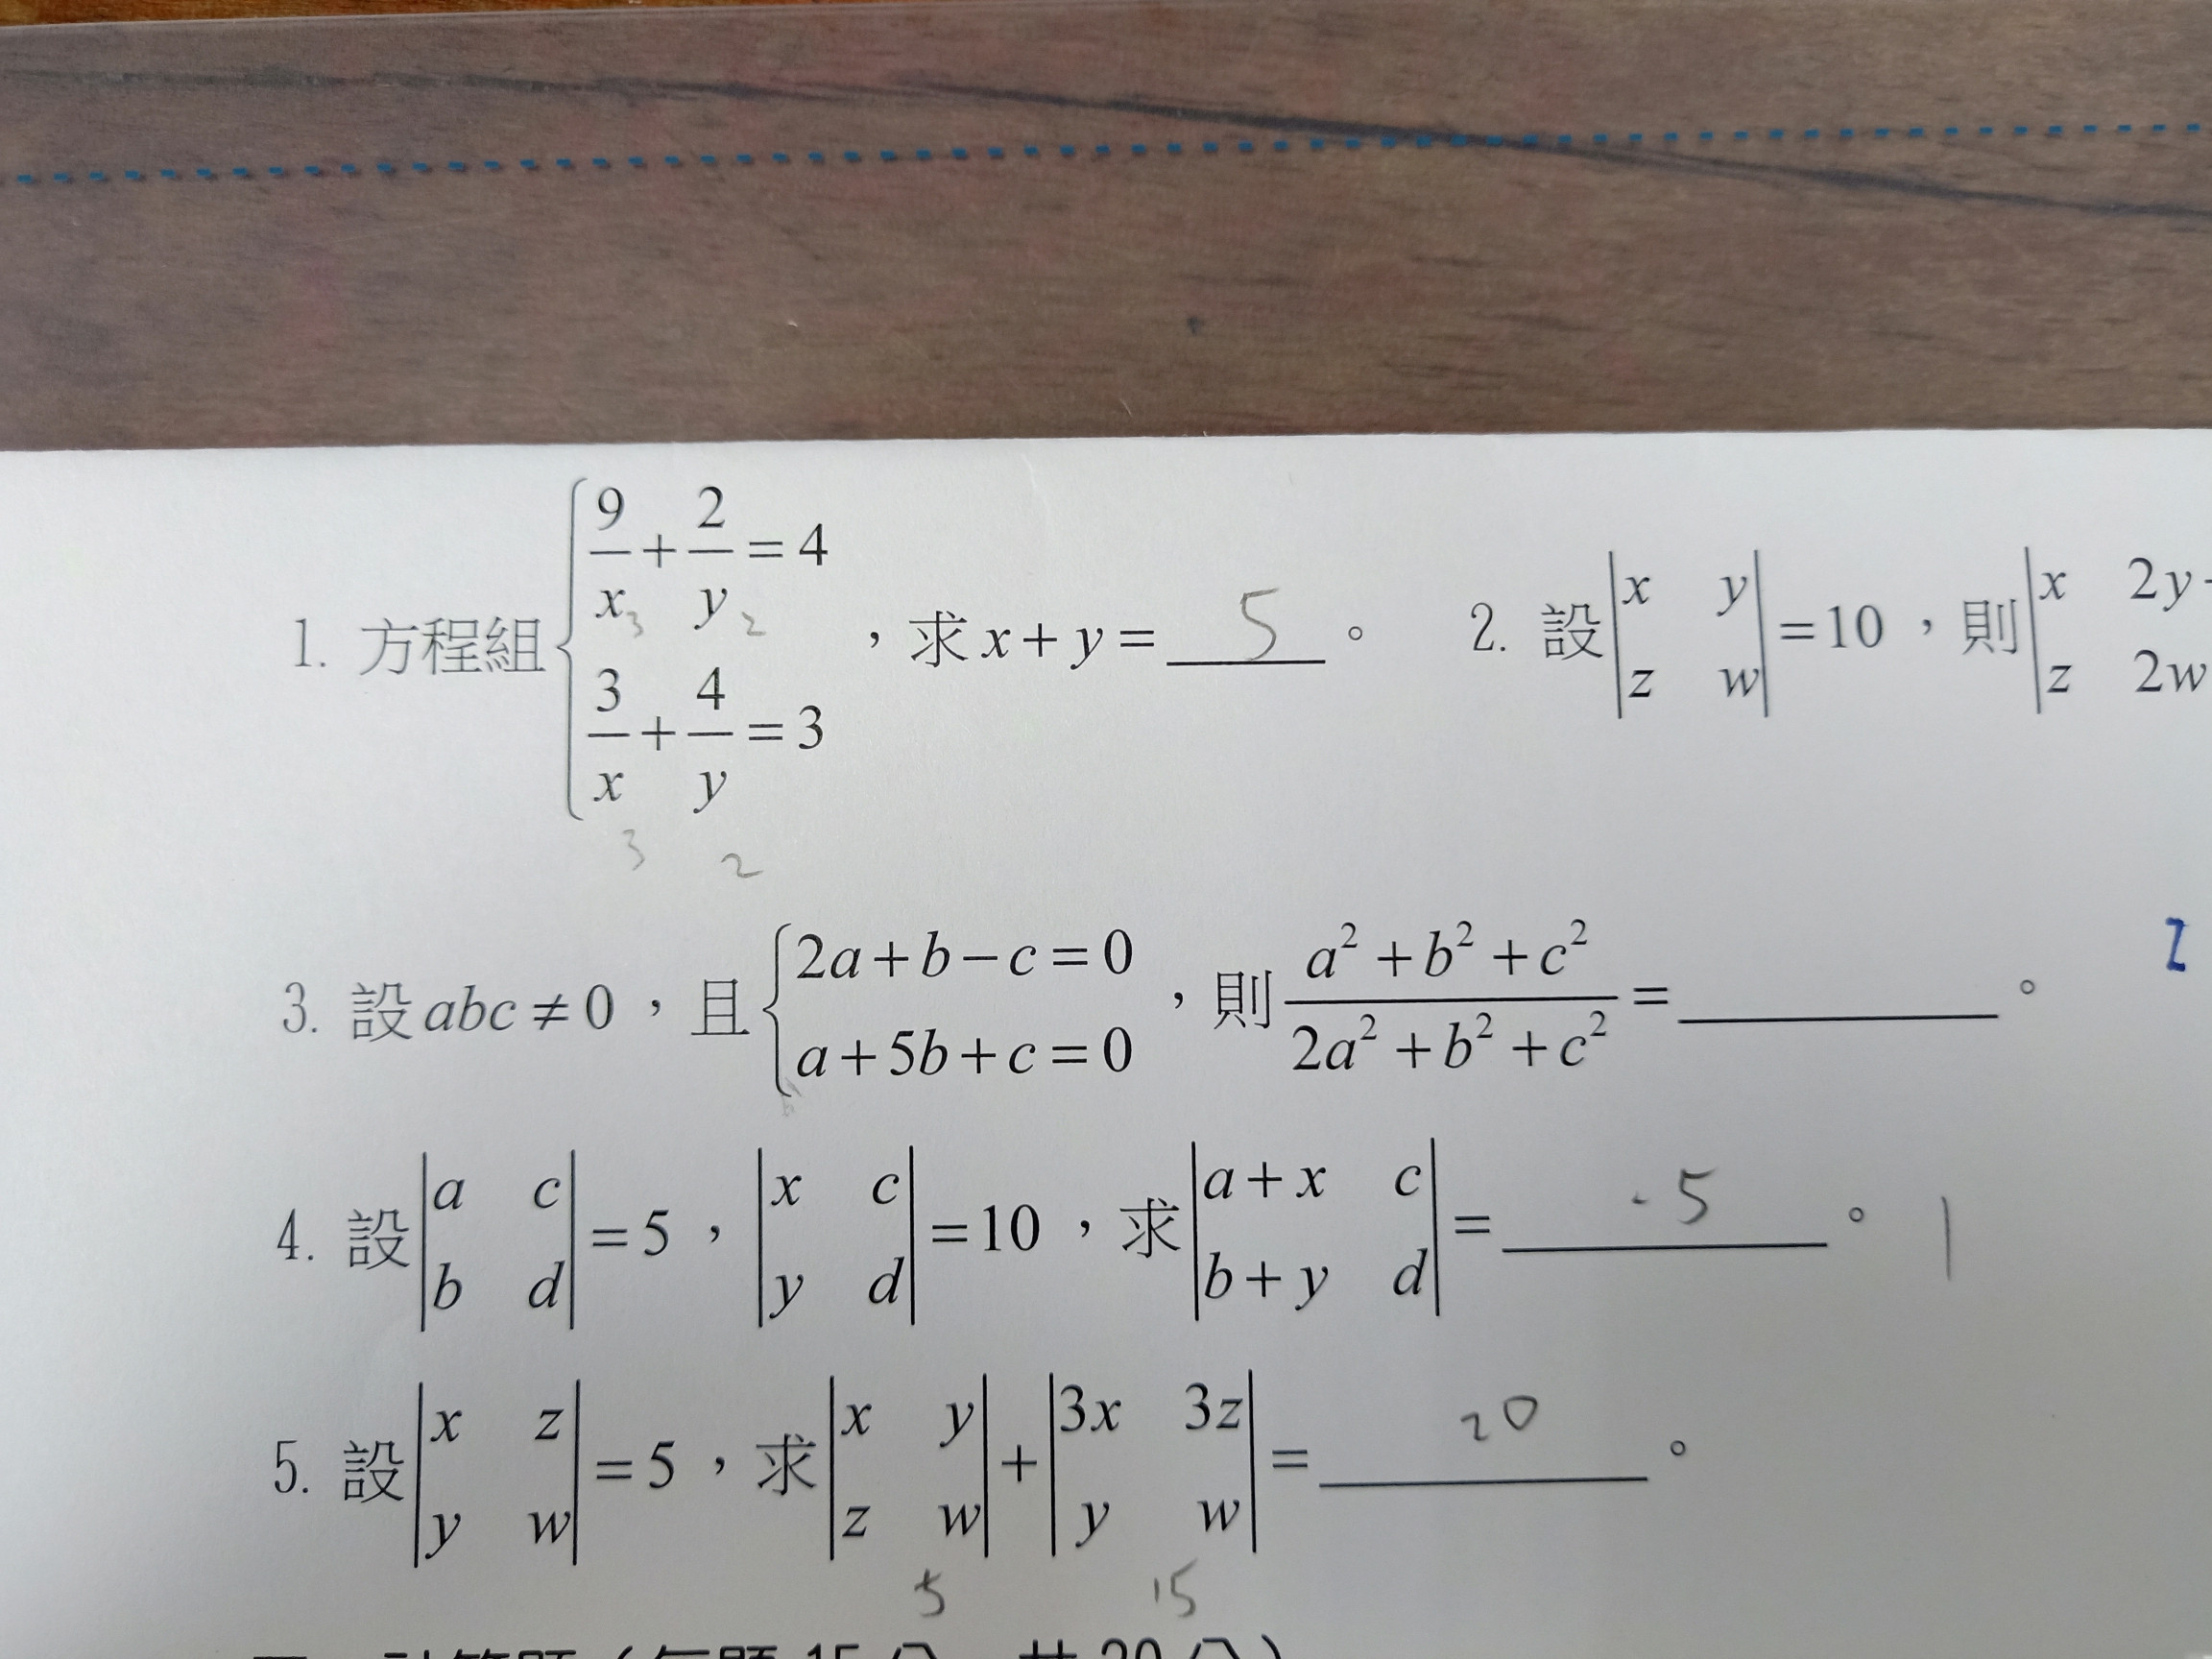 1. 方程組 { 9/x + 2/y = 4 , 3/x + 4/y = 3 ，求 x + y = 5 。
3 2
3 2
2. 設 | x y ; z w | = 10 ，則 | x 2y ; z 2w
3. 設 abc ≠ 0 ，且 { 2a + b − c = 0 , a + 5b + c = 0 ，則 (a² + b² + c²)/(2a² + b² + c²) = ______ 。
4. 設 | a c ; b d | = 5 ， | x c ; y d | = 10 ，求 | a + x c ; b + y d | = -5 。
5. 設 | x z ; y w | = 5 ，求 | x y ; z w | + | 3x 3z ; y w | = 20 。
5 15